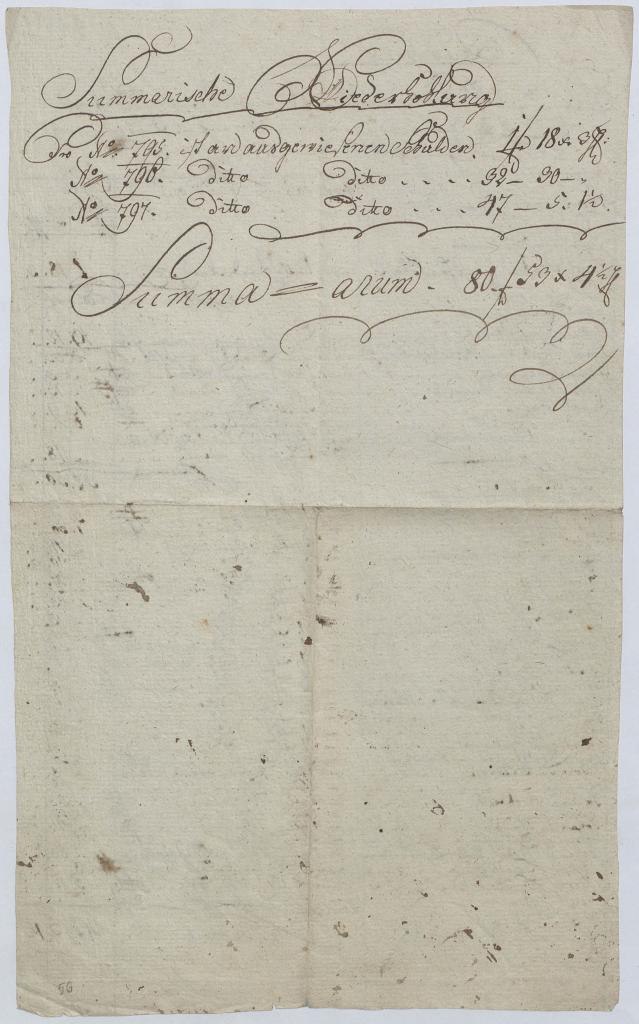 Summarische Wiederhohlung
Pro Ao 795. ist an ausgewiesenen Schulden. 1 f 18 x 3 ₰
Ao 796. ditto ditto . . . . 32 – 30 – .
Ao 797. ditto ditto . . . 47 – 5. 1½.
Summa = arum. 80 f 53 x 4½ ₰
56